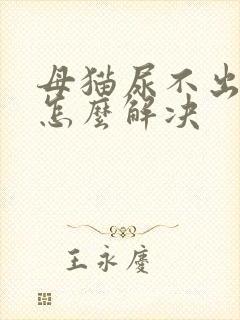 母猫尿不出
怎麼解决
王永慶